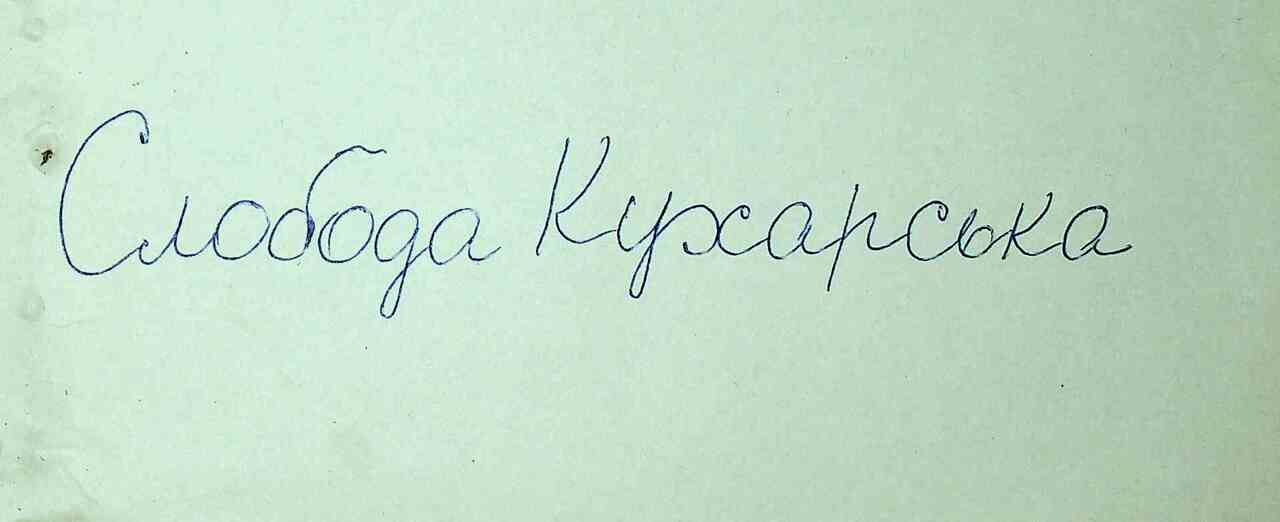 Слобода Кухарська